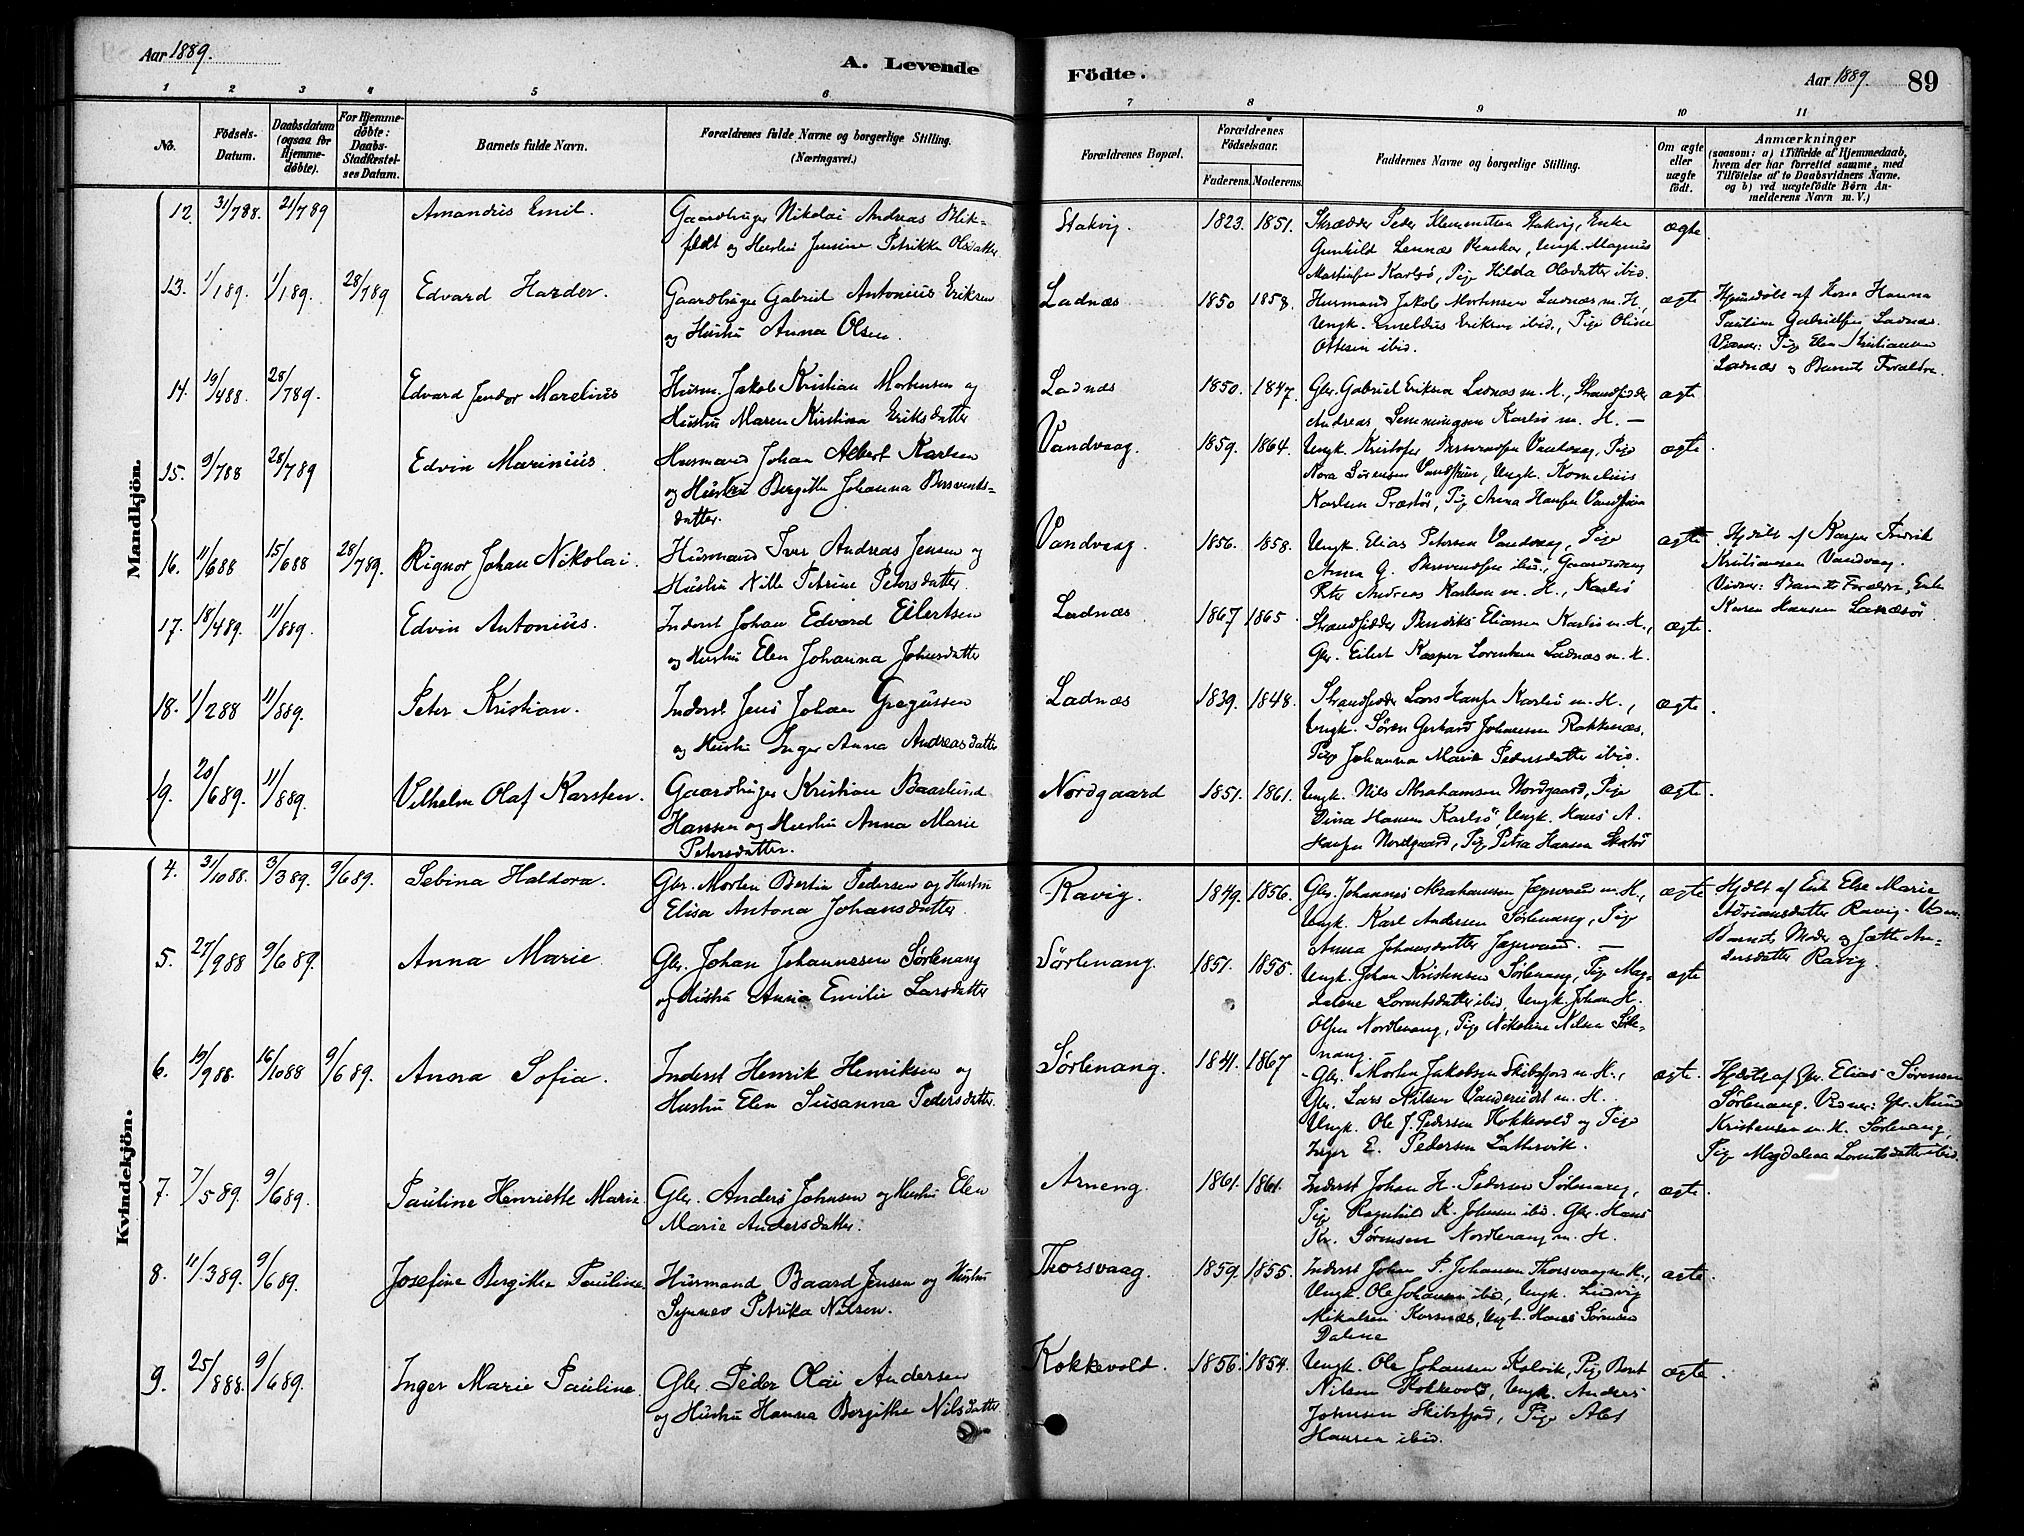 Aar 1889.
A. Levende
Födte.
Aar 1889.
89
1 2 3 4 5 6 7 8 9 10 11
No.
Födsels-
Datum.
Daabsdatum
(ogsaa for
Hjemme-
döbte).
For Hjemme-
döbte:
Daabs-
Stadfestel-
ses Datum.
Barnets fulde Navn.
Forældrenes fulde Navne og borgerlige Stilling.
(Næringsvei.)
Forældrenes Bopæl.
Forældrenes
Födselsaar.
Faderens. Moderens.
Faddernes Navne og borgerlige Stilling.
Om ægte
eller
uægte
födt.
Anmærkninger
(saasom: a) i Tilfælde af Hjemmedaab,
hvem der har forrettet samme, med
Tilföielse af to Daabsvidners Navne,
og b) ved uægtefödte Börn An-
melderens Navn m. V.)
Mandkjön.
12. 31/788. 21/789 Amandus Emil. Gaardbruger Nikolai Andreas Blik-
feldt og Hustru Jensine Petrikke Olsdatter
Stakvig 1823. 1851. Skrædder Peder Klemmetsen Stakvig, Enke
Gunhild Lennæs, Ungk. Magnus
Martinsen Karlsö, Pige Hilda Olsdatter ibid.
ægte
13. 1/189. 1/189. 28/789 Edvard Harder. Gaardbruger Gabriel Antonius Eriksen
og Hustru Anna Olsen.
Ladnæs 1850 1858. Husmand Jakob Mortensen Ladnæs m. H,
Ungk. Eriksen ibid., Pige Oline
Ottesen ibid.
ægte Hjemdöbt af Kone Hanna
Pauline Gabrielsen Ladnæs.
Vidner: Pige Elen Kristiansen
Ladnæs og Barnets Forældre.
14. 19/488. 28/789. Edvard Jendor Marelius Husm. Jakob Kristian Mortensen og
Hustru Maren Kristina Eriksdatter
Ladnæs 1850. 1847. Gbr. Gabriel Eriksen Ladnæs m. H., Strandsidder
Andreas Henningsen Karlsö m. H. —
ægte
15. 9/788 28/789 Edvin Marinius. Husmand Johan Albert Karlsen
og Hustru Bergithe Johanna Bersvends-
datter.
Vandvaag. 1859. 1864. Ungk. Kristofer Bersvendsen Vandvaag, Pige
Nora Sörensen Vandstuen, Ungk. Kornelius
Karlsen Præstö, Pige Anna Hansen Vandstuen
ægte.
16. 11/688 15/688 28/789. Rignor Johan Nikolai. Husmand Iver Andreas Jensen og
Hustru Nille Petrine Petersdatter
Vandvaag. 1856. 1858. Ungk. Elias Petersen Vandvaag, Pige
Anna G. Bersvendsen ibid., Gaardsdreng
Peter Andreas Karlsen m. H., Karlsö
ægte Hjdöbt af Kasper Fredrik
Kristiansen Vandvaag.
Vidner: Barnets Forældre, Enke
Karen Hansen Lanæsör
17. 18/489. 11/889. Edvin Antonius. Inderst Johan Edvard Eilertsen
og Hustru Elen Johanna Johnsdatter
Ladnæs 1867 1865 Strandsidder Bendiks Eliassen Karlsö m. H.,
Gbr. Eilert Kasper Lorentsen Ladnæs m. H.
ægte.
18. 1/288 11/889. Peter Kristian. Inderst Jens Johan Gregussen
og Hustru Inger Anna Andreasdatter
Ladnæs 1839. 1848. Strandsidder Lars Hansen Karlsö m. H.,
Ungk. Sören Gerhard Johannesen Rakkenæs,
Pige Johanna Marie Pedersdatter ibid.
ægte.
19. 20/689. 11/889. Vilhelm Olaf Karsten. Gaardbruger Kristian Baarlund
Hansen og Hustru Anna Marie
Petersdatter.
Nordgaard 1851. 1861. Ungk. Nils Abrahamsen Nordgaard, Pige
Dina Hansen Karlsö, Ungk. Hans A.
Hansen Nordgaard, Pige Petra Hansen
ægte.
Kvindekjön.
4. 31/1088. 3/389. 9/689. Sebina Haldora. Gbr. Morten Bertin Pedersen og Hustru
Elisa Antona Johansdatter
Ravig. 1849. 1856. Gbr. Johannes Abrahamsen Jægervand m. H.,
Ungk. Karl Andersen Sörlenang, Pige
Anna Johansdatter Jægervand. —
ægte Hjdöbt af Enk Else Marie
Adriansdatter Ravig. Vidn.
Barnets Moder og Jætte An-
dersdatter Ravig.
5. 27/988 9/689. Anna Marie Gbr. Johan Johannesen Sörlenang
og Hustru Anna Emilie Larsdatter
Sörlenang. 1851. 1855. Ungk. Johan Kristensen Sörlenang, Pige Mag-
dalene Lorentsdatter ibid, Ungk. Johan H.
Olsen Nordlenang, Pige Nikoline Nilsen Sörle-
nang. —
ægte
6. 19/988. 16/1088 9/689. Anna Sofia. Inderst Henrik Henriksen og
Hustru Elen Susanna Pedersdatter.
Sörlenang. 1841. 1867 Gbr. Morten Jakobsen Skibsfjord m. H.,
Gbr. Lars Nilsen m. H.
Ungk. Ole J. Pedersen Kokkevold og Pige
Inger E. Pedersen Lattervik.
ægte. Hjdöbt af Gbr. Elias Sörensen
Sörlenang. Vidner: Gbr. Knud
Kristensen m. H. Sörlenang,
Pige Magdalena Lorentsdatter ibid.
7. 7/589. 9/689. Pauline Henriette Marie. Gbr. Anders Johnsen og Hustru Elen
Marie Andersdatter.
Arneng. 1861. 1861. Inderst Johan H. Pedersen Sörlenang,
Pige Ragnhild K. Johnsen ibid. Gbr. Hans
Kr. Sörensen Nordlenang m. H.
ægte.
8. 11/389. 9/689. Josefine Bergithe Pauline. Husmand Baard Jensen og Hustru
Synnev Petrika Nilsen.
Thorsvaag. 1859. 1855. Inderst Johan P. Johansen Thorsvaag m. H.,
Ungk. Ole Johansen ibid, Ungk. Ludvig
Mikalsen Korsnæs, Ungk. Hans Sörensen
Dalene
ægte.
9. 25/888. 9/689. Inger Marie Pauline. Gbr. Peder Olai Andersen
og Hustru Hanna Bergithe Nilsdatter.
Kokkevold. 1856. 1854. Ungk. Ole Johansen Kalvik, Pige Beret
Nilsen Kokkevold, Ungk. Anders
Johnsen Skibsfjord, Pige Ales
Hansen ibid.
ægte.